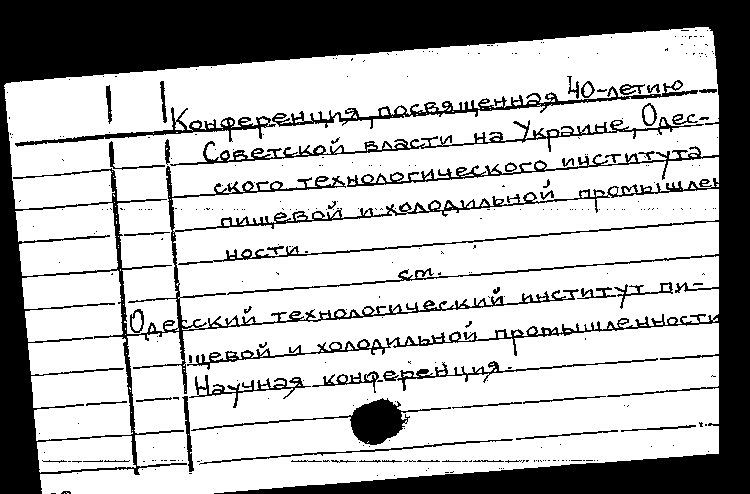 Конференция, посвященная 40-летию
Советской власти на Украине, Одес-
ского технологического института
пищевой и холодильной промышлен
ности.
см.
Одесский технологический институт пи-
щевой и холодильной промышленности
Научная конференция.